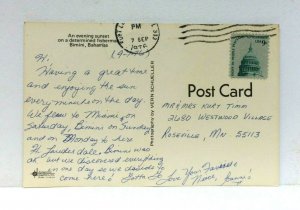 An evening sunset
on a determined fisherman
Bimini, Bahamas
PM
7 SEP
1976
9c
Hi,
Having a great time
and enjoying the sun
every minute of the day
We flew to Miami on
Saturday, Bimini on Sunday
and on Monday to here
Ft Lauderdale. Bimini was
ok but we discovered everything
in one day so we decided to
come here!
Love Your Favorite
Niece,
PHOTOGRAPHED BY VERN SCHAELLER
Post Card
MR & MRS KURT TIMM
2680 WESTWOOD VILLAGE
ROSEVILLE, MN 55113